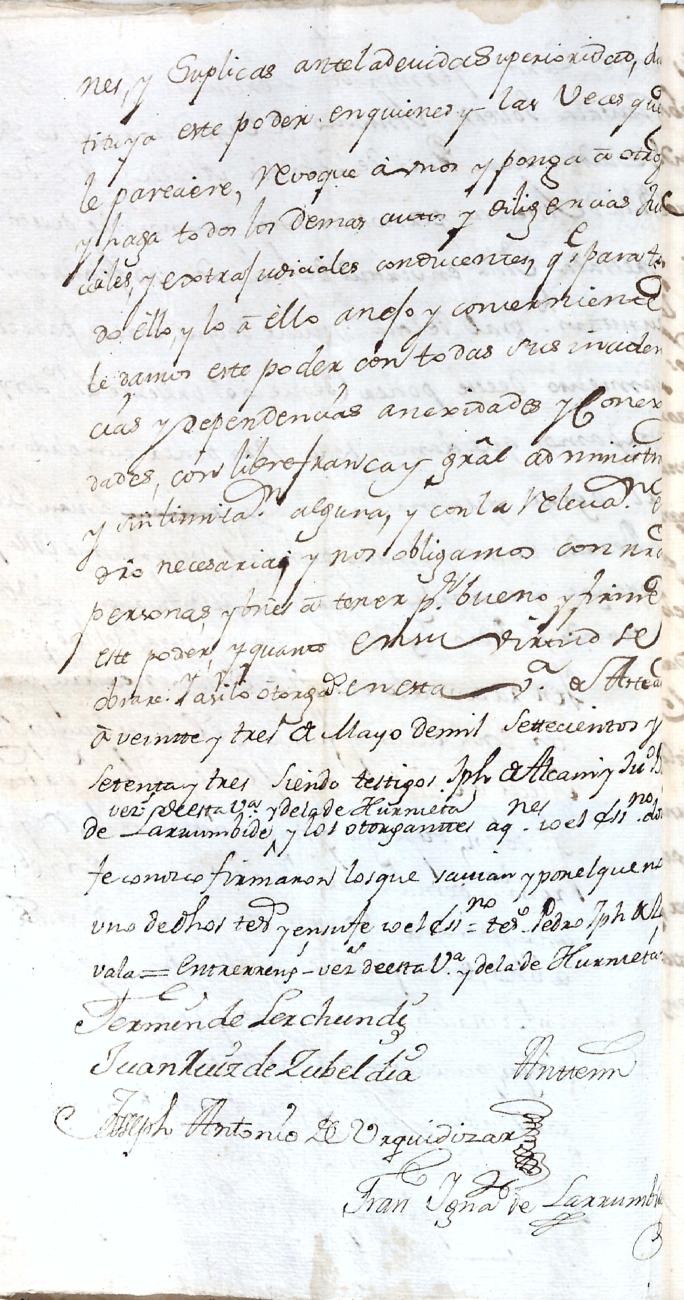 nes, y Suplicas ante la devida Superioridad,
tituya este poder en quienes y las Veces que
le pareciere, revoque á unos y ponga á otros
y haga todos los demas autos y dilixencias Ju
ciales, y extrajudiciales conducentes, q.e para to
do éllo, y lo á éllo anejo y conveniente
le damos este poder con todas sus inciden
cias y dependencias anexidades y Conex
dades, con libre franca y grâl administr
y sin limita.on alguna, y con la releva.on
dro necesaria; y nos obligamos con nrâ
personas y bnes á tener p.r bueno y firme
este poder, y quanto en su virtud se
obrare. Y asi lo otorga.s en esta V.a de
á veintte y tres de Mayo de mil Settecientos y
setenta y tres siendo testigos Jph de
vez.s de esta V.a y de la de Hurnieta
de Larrumbide, y los otorganttes aq.nes yo el Ess.no
fe conozco firmaron los que savian y por el que no
uno de dhos tes.s y en su fe yo el Ess.no = tes.o Pedro Jph de
vala = Entrerrens = vez.s de esta V.a y de la de Hurnieta
Fermin de Lerchundi
Juan Ruiz de Zubeldia Antte mi
Joseph Antonio de Urquidizar
Fran Igna.o de Larrumbi